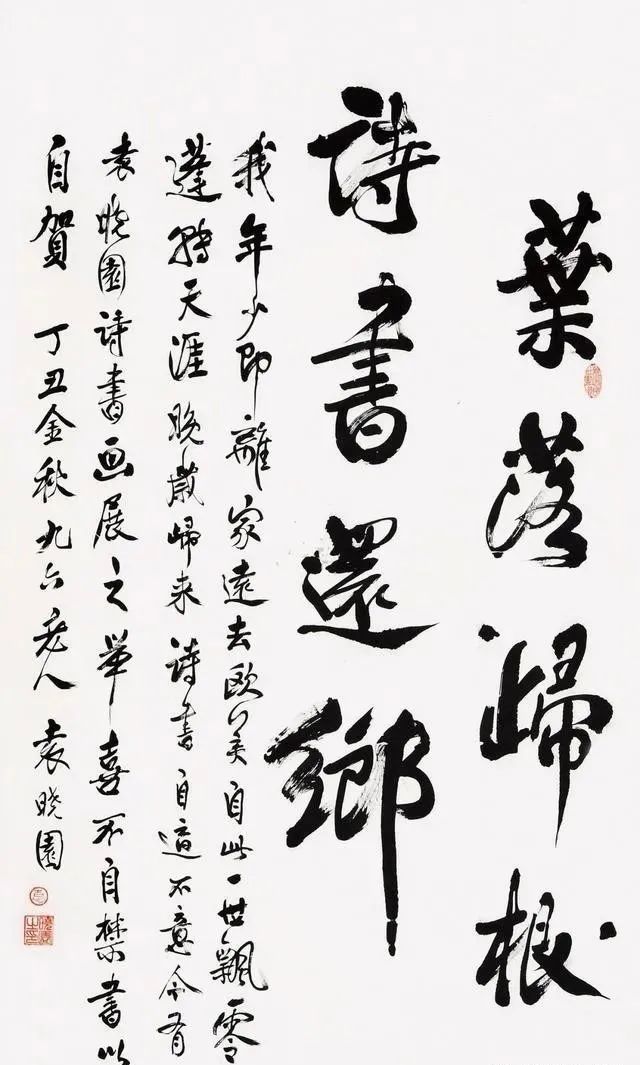 葉落歸根
詩書還鄉
我年少即離家遠去欧美自此一世飄零
蓬轉天涯晚歲歸来詩書自適不意今有
袁曉園詩書画展之舉喜不自禁書以
自賀 丁丑金秋九六老人袁曉園